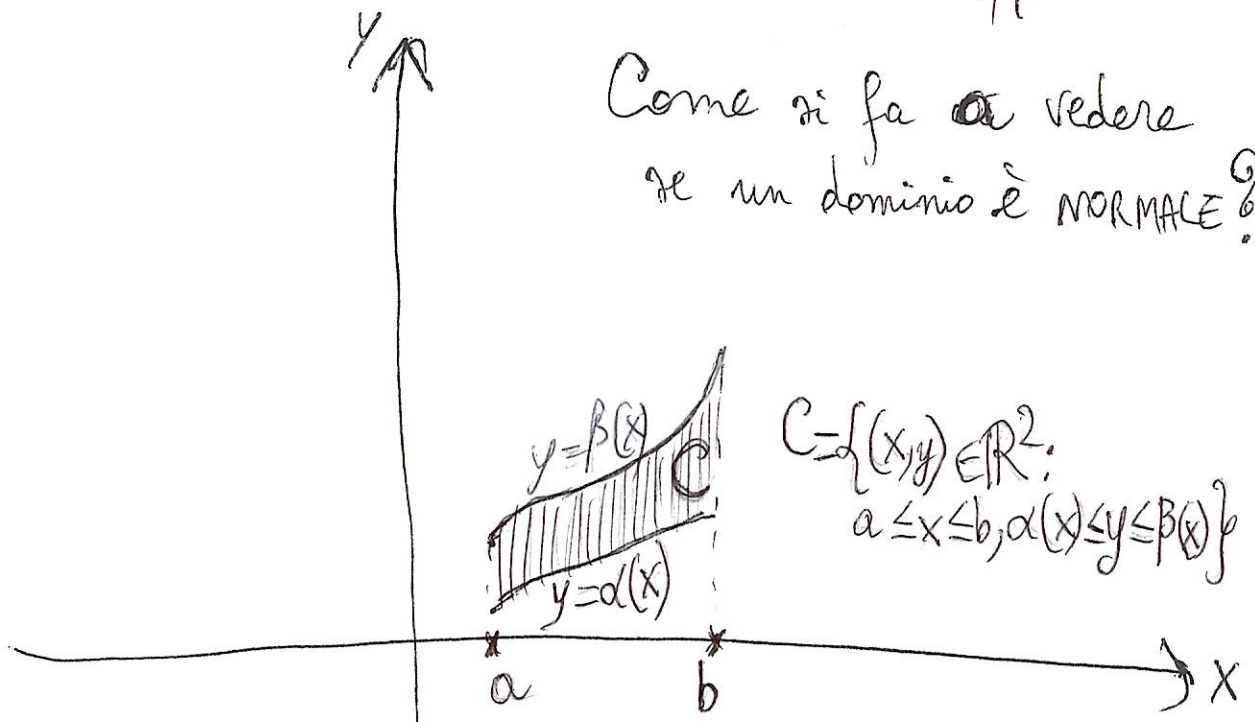 y
Come si fa a vedere
se un dominio è NORMALE?
y=β(x)
C
C={(x,y)∈ℝ²:
a≤x≤b, α(x)≤y≤β(x)}
y=α(x)
a
b
x